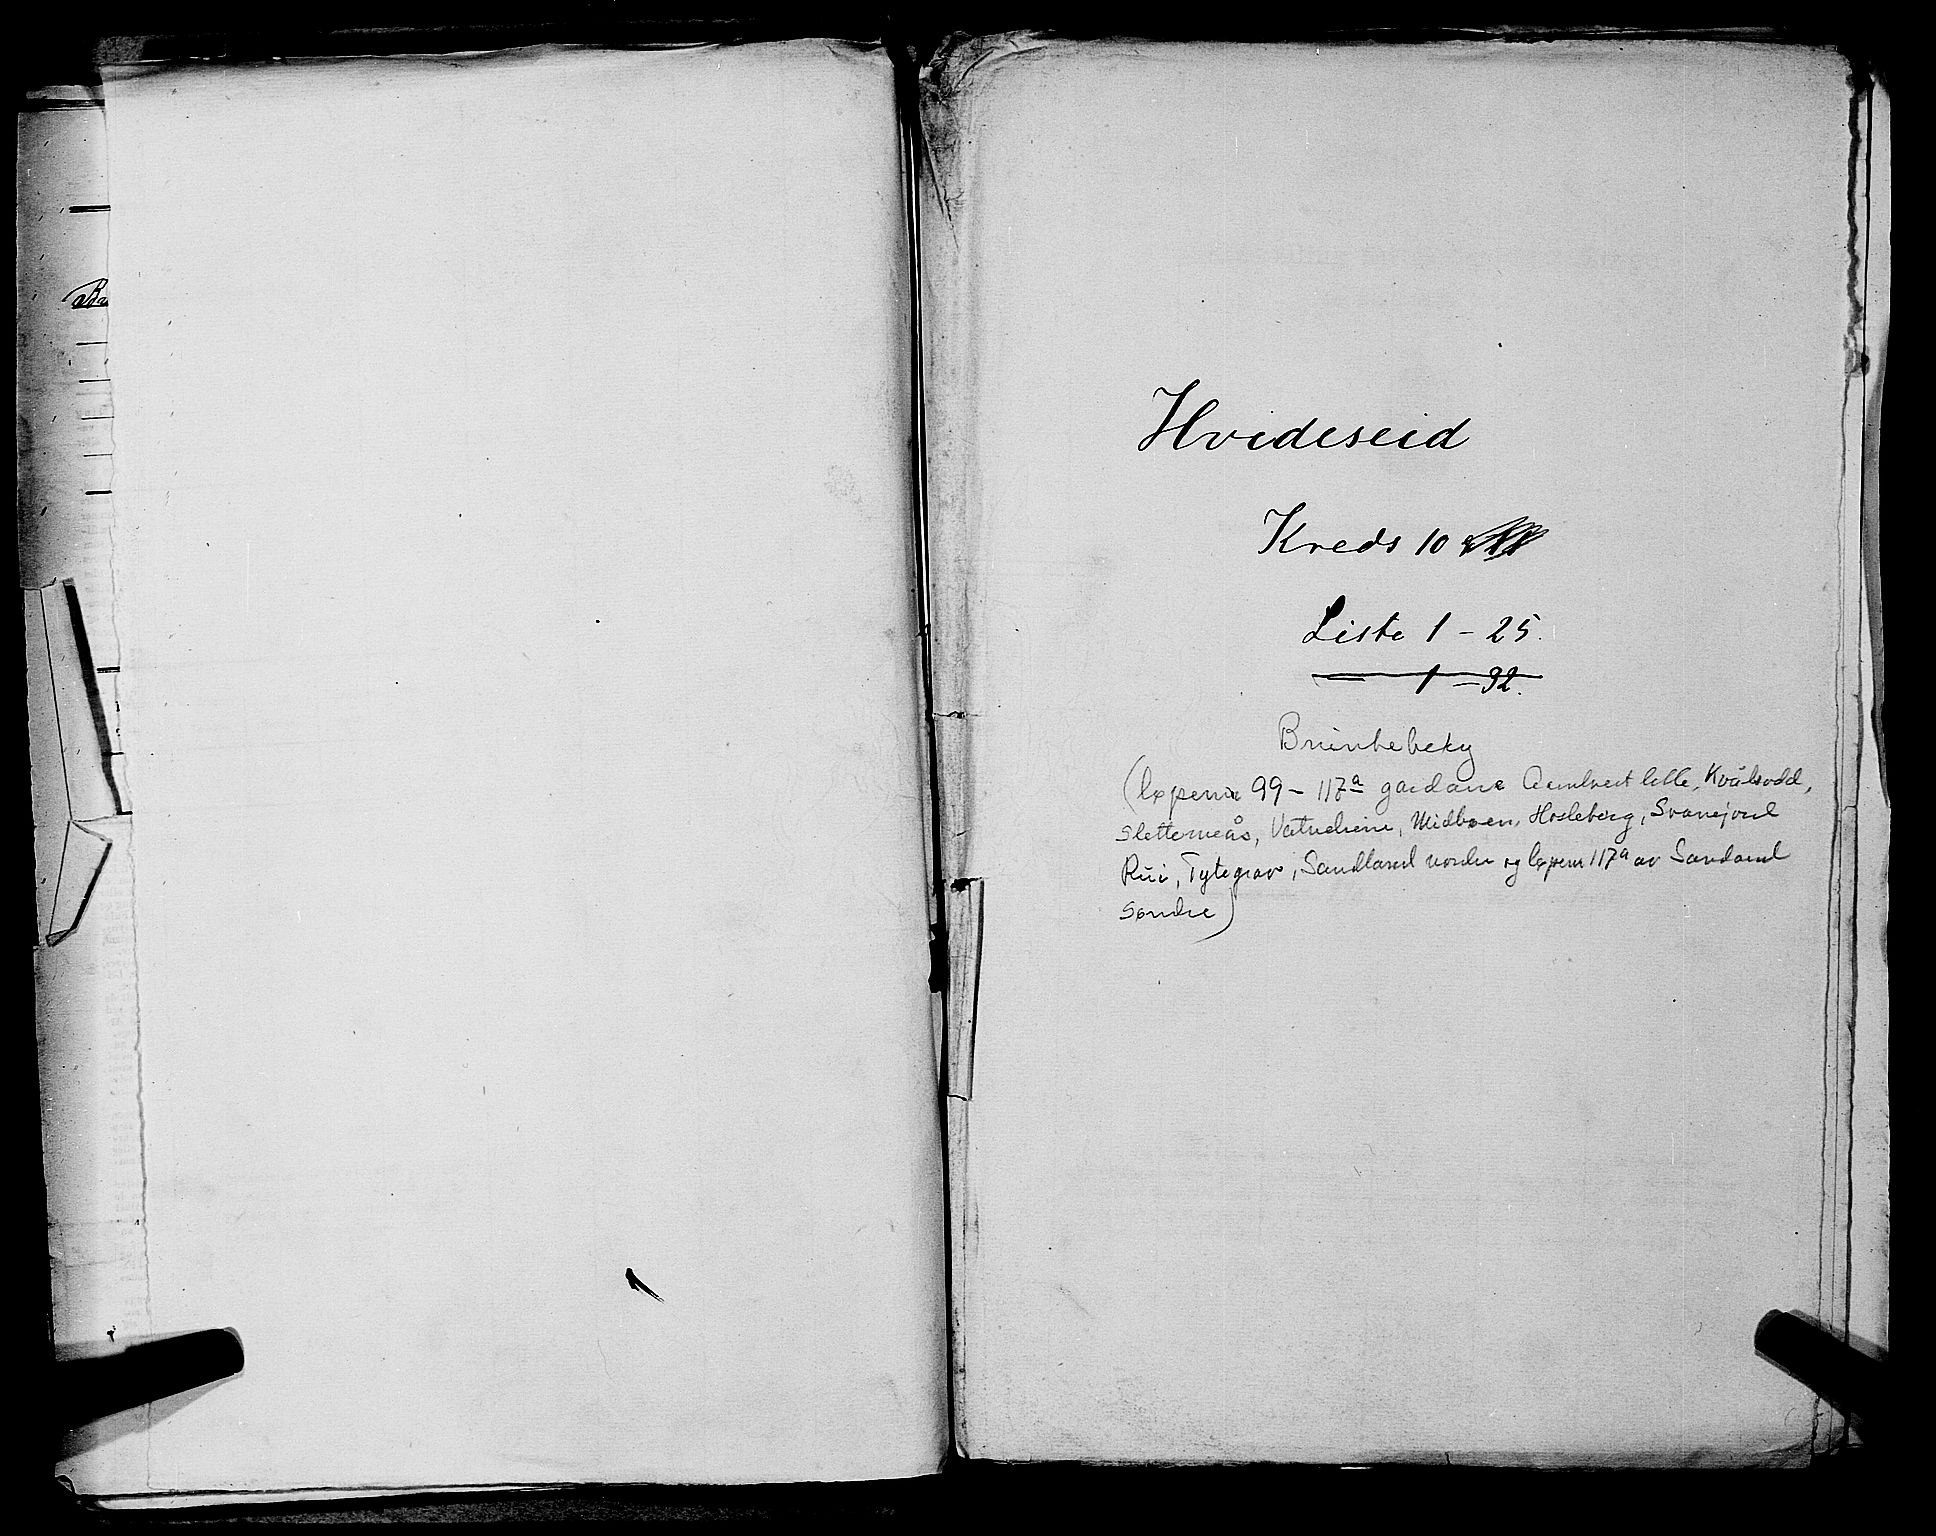 Ba
Hvideseid
Kreds 10
Liste 1 - 25.
1 - 32.
Brunkeberg
(løpenr 99 - 117a gardane lille, Kvålsodd,
Slettemeås, Midbøen, Hosleberg, Svanejord
Rui, Tytegrav, Sandland nordre og løpenr 117a av Sandland
Søndre)